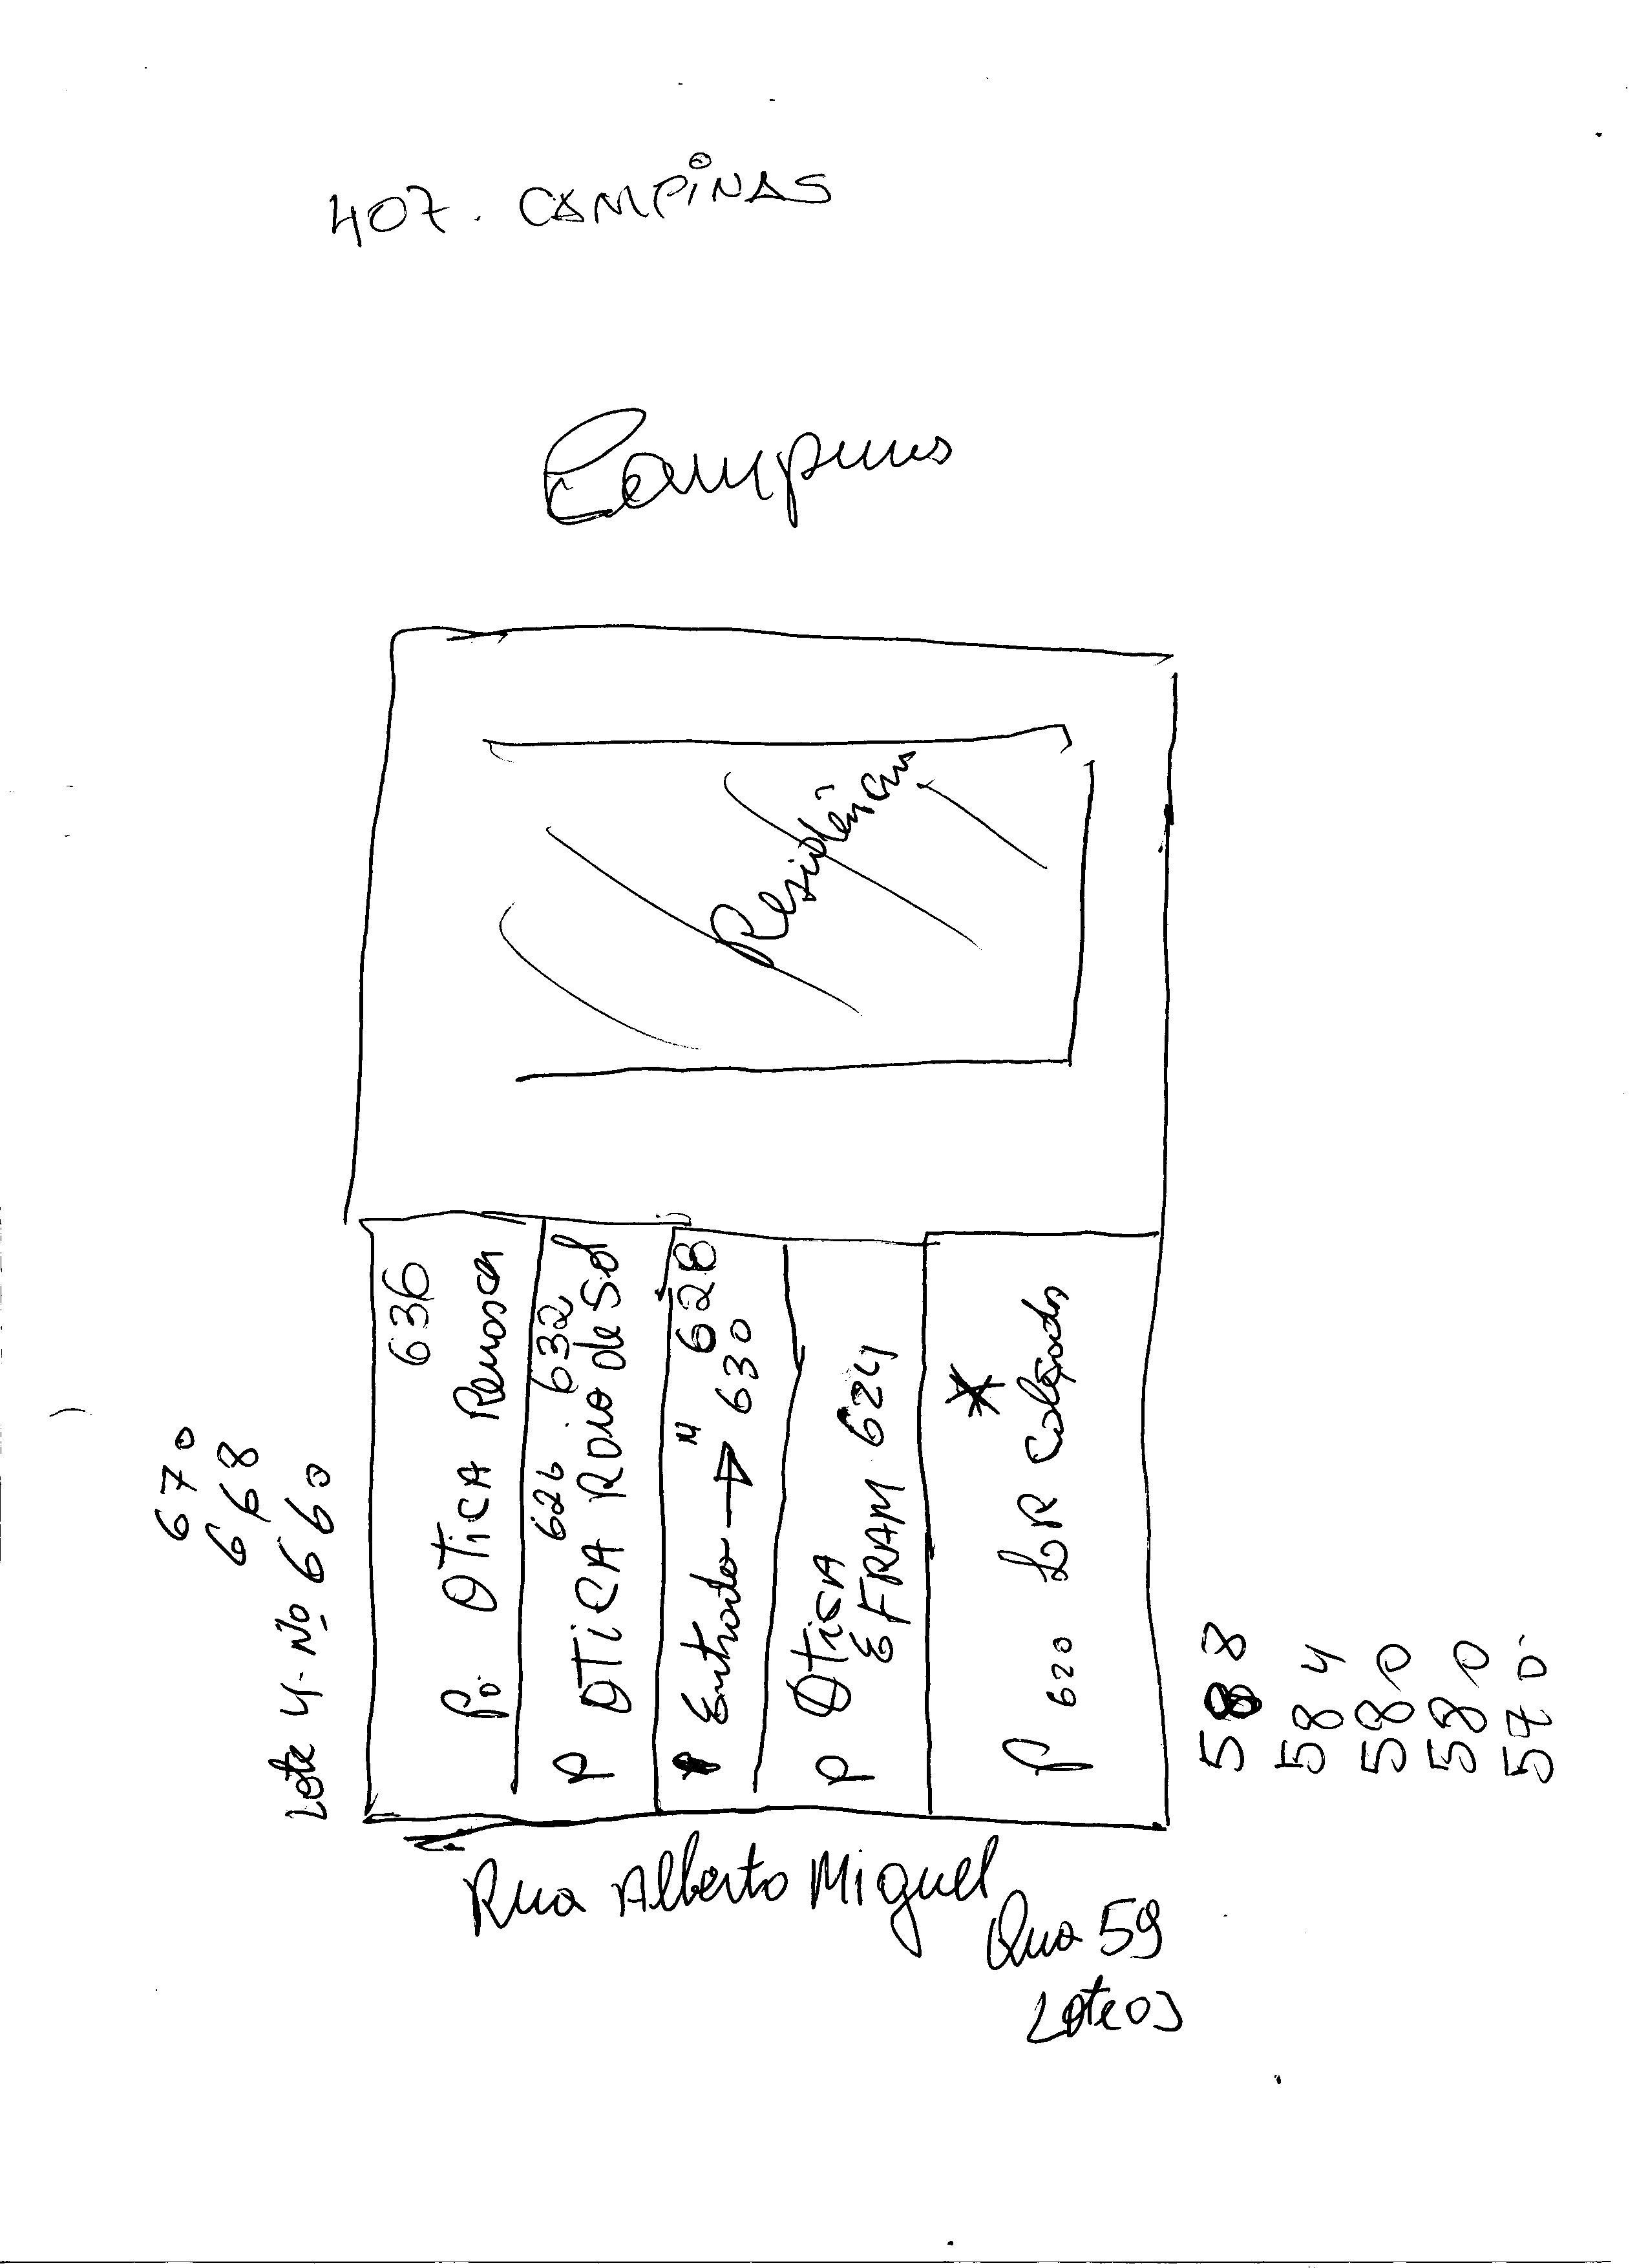 407. CAMPINAS
Campinas
Residência
670
668
Lote 4. Nº 660
636
P. OTICA
626 632
P OTICA Raio de Sol
Entrada → 630
" 628
P OTICA
EFRAM 624
*
P 620 LR Calçados
588
584
580
580
570
Rua Alberto Miguel
Qua 59
Lote 03